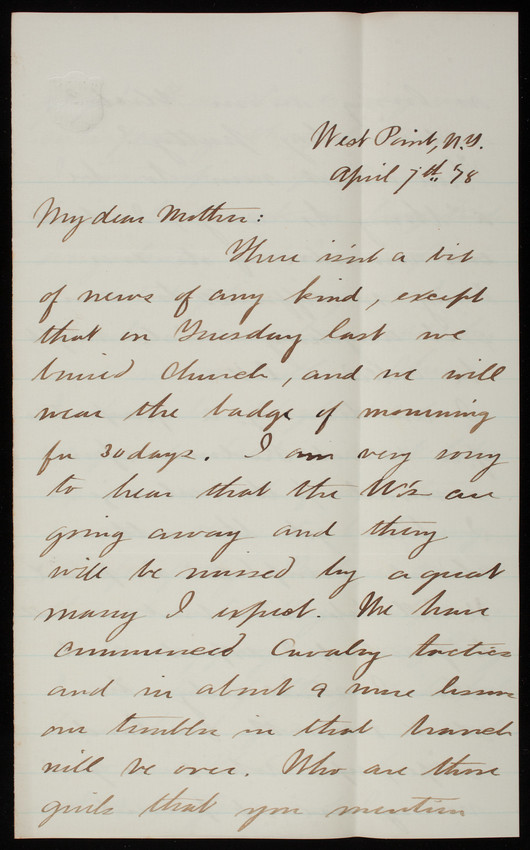 West Point, N.Y.
April 7th '78
My dear Mother:
There isn't a bit
of news of any kind, except
that on Tuesday last we
buried Church, and we will
wear the badge of mourning
for 30 days. I am very sorry
to hear that the W's are
going away and they
will be missed by a great
many I expect. We have
commenced Cavalry tactics
and in about 9 more lessons
our trouble in that branch
will be over. Who are those
girls that you mention